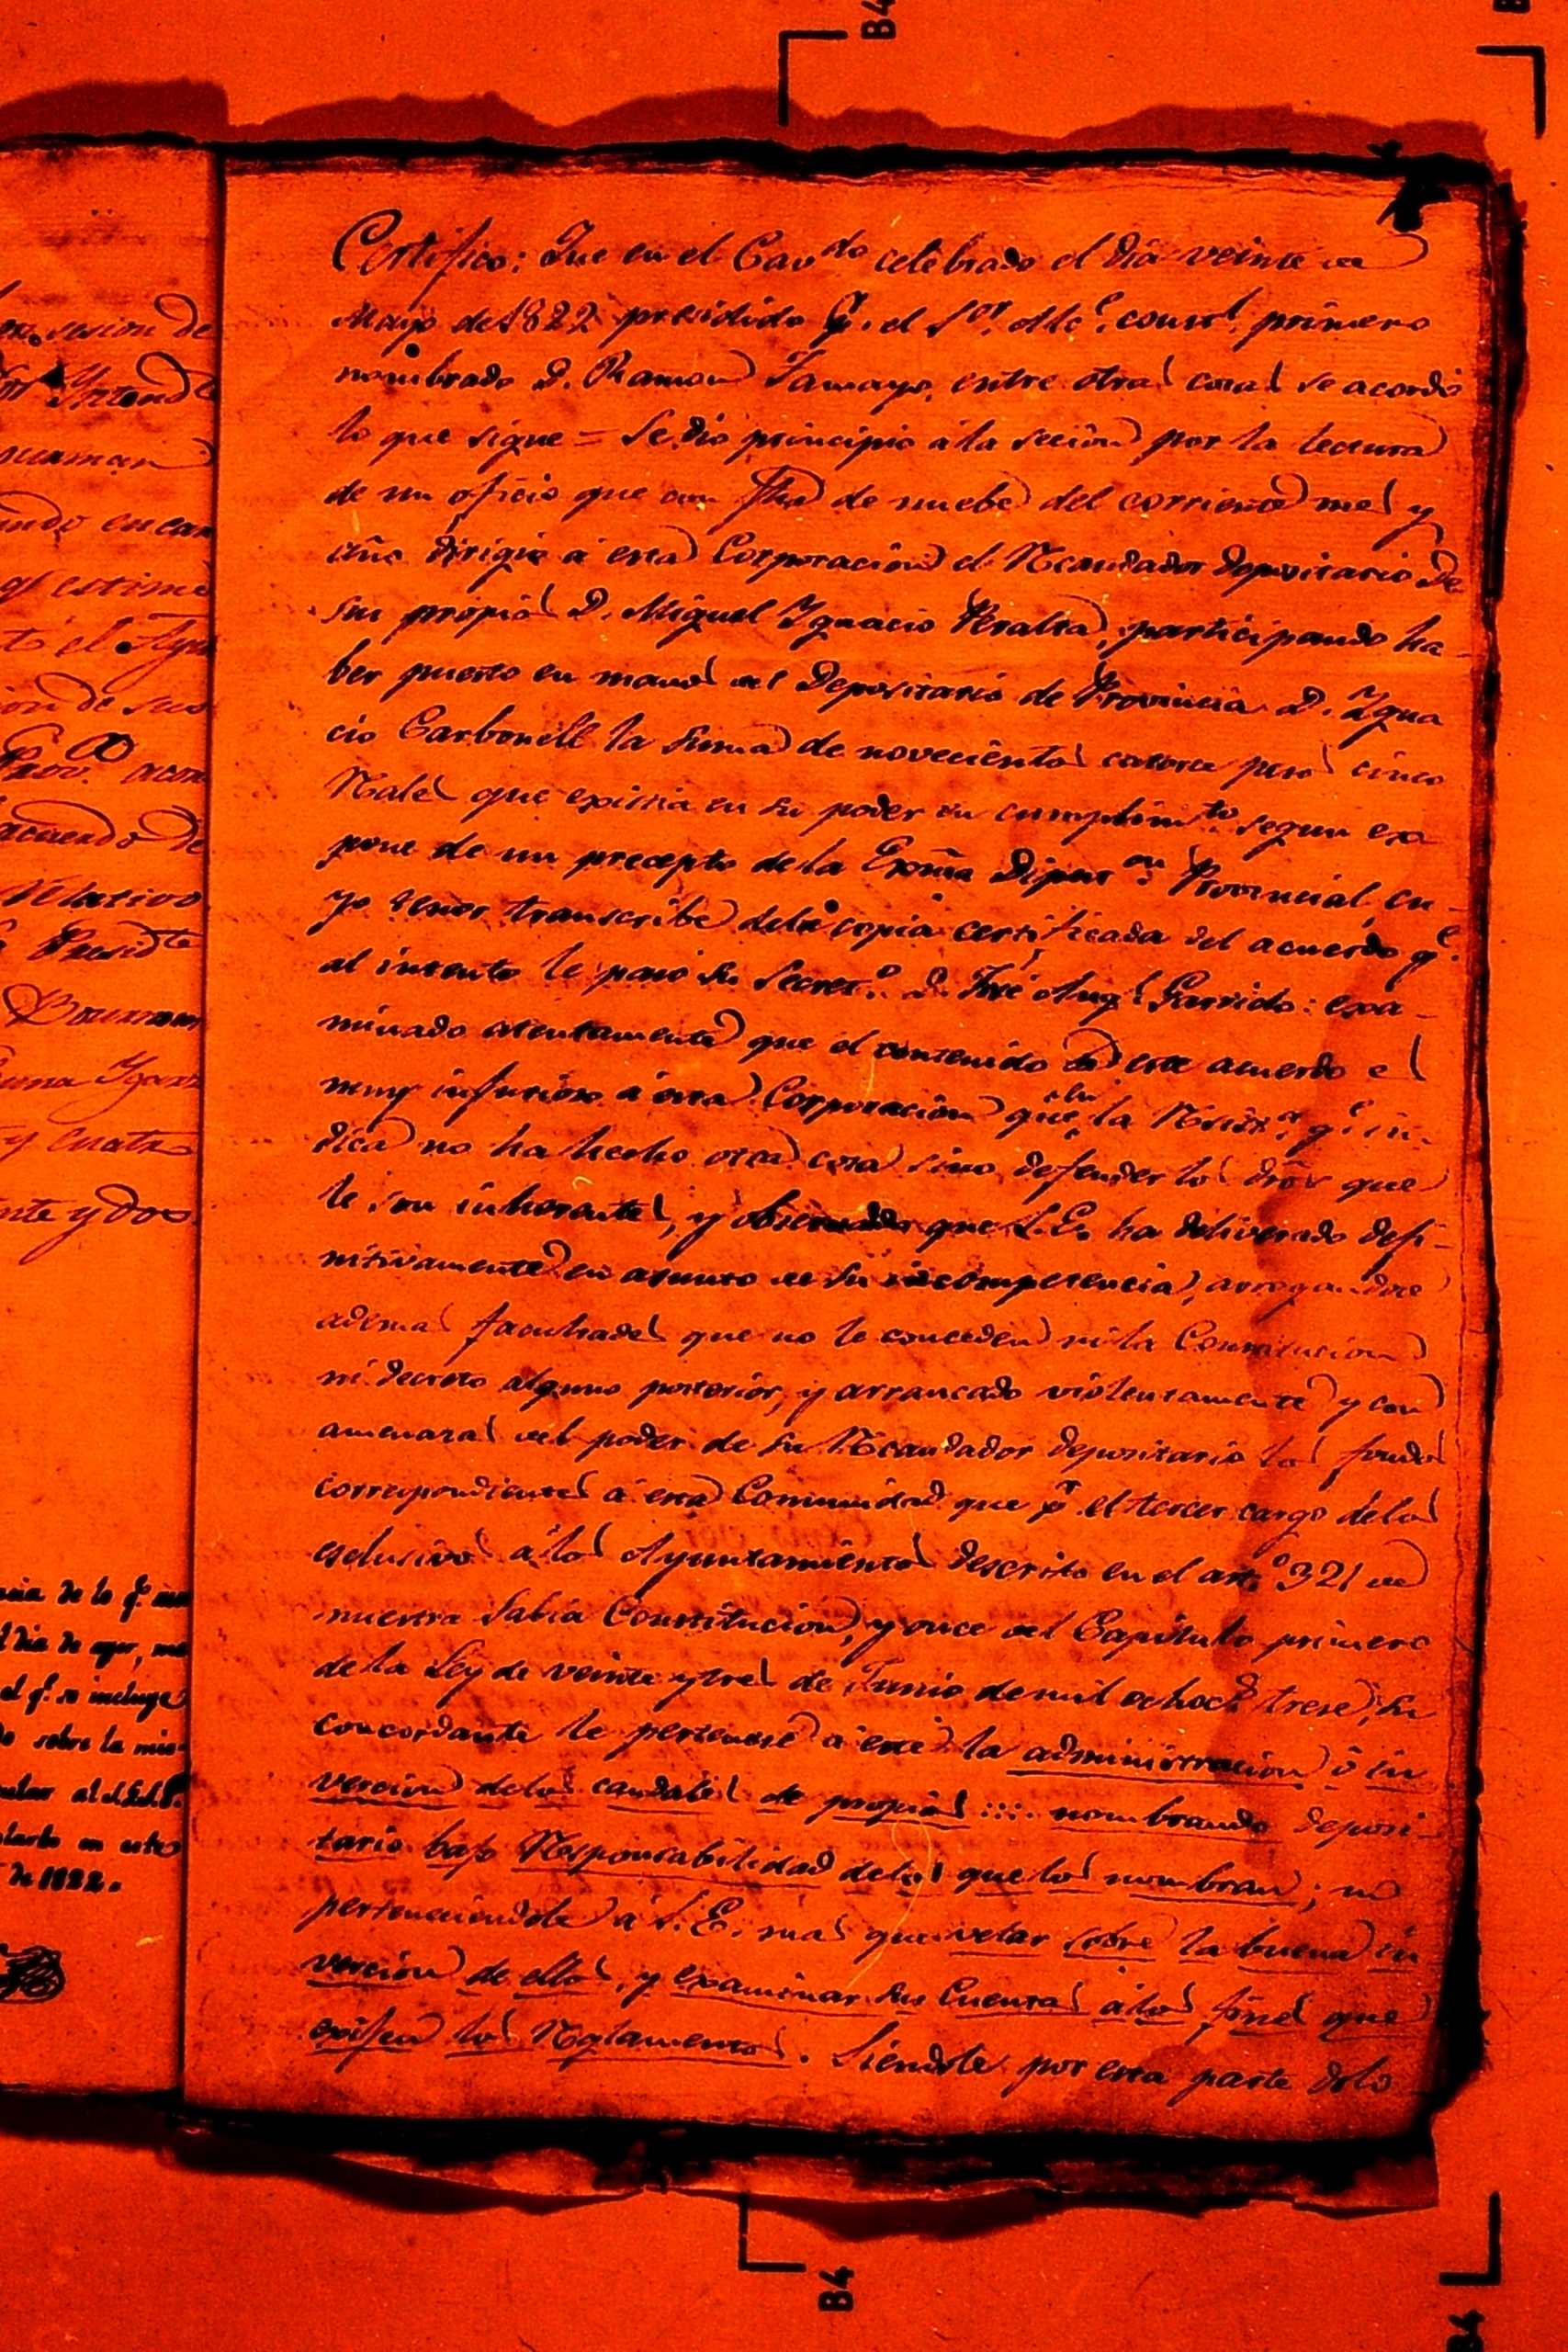 B4
on, sesion de
Yntend
ando encar
q.e estime
to el Ayu
ion de sus
Prov.l acor
acuerdo de
Relativo
Presid.te
Bouxman
y Cuatro
nte y dos
ncia de lo q.e
l dia de ayer,
el q.e se incluye
do sobre la mis-
darlo en este
de 1822.
Certifico: Que en el Cav.do celebrado el dia veinte de
Mayo de 1822 presidido p.r el S.or Alc.e const.l primero
nombrado D. Ramon Tamayo, entre otras cosas se acordó
lo que sigue = Se dio principio á la secion por la lectura
de un oficio que con fha de nuebe del corriente mes y
año dirigio á esta Corporacion el Recaudador depositario de
sus propios D. Miguel Ygnacio Peralta, participando ha-
ber puesto en manos del Depositario de Provincia D. Ygna
cio Carbonell la suma de novecientos catorce pesos cinco
Rales que existia en su poder en cumplim.to segun ex
pone de un precepto de la Exma Diput.on Provincial, cu-
yo tenor transcribe dela copia certificada del acuerdo q.e
al intento le paso su Secret.o D. José Aug.l Garrido: exa-
minado atentamente que el contenido de este acuerdo es
muy injurioso á esta Corporacion que en la q.e in-
dica no ha hecho otra cosa sino defender los dros que
le son inherentes, y observado que S.E. ha deliverado defi-
nitivamente en asunto de su incompetencia, arrogandose
ademas facultades que no le conceden ni la Constitucion
ni decreto alguno posterior, y arrancado violentamente y con
amenazas del poder de su Recaudador depositario los fondos
correspondientes á esta Comunidad que p.r el tercer cargo delos
esclusivos álos Ayuntamientos descrito en el art.o 321 de
nuestra Sabia Constitucion, y once del Capitulo primero
de la Ley de veinte y tres de Junio de mil ochoc.s trese, su
concordante le pertenese á este la administracion é in
vercion delos caudales de propios :::: nombrando deposi-
tario bajo Responsabilidad delos que los nombran; no
perteneciendole á S.E. mas que velar sobre la buena in
vercion de ellos, y examinar sus Cuentas álos fines que
exijen los Reglamentos. Siendole por esta parte dolo
B4
B4